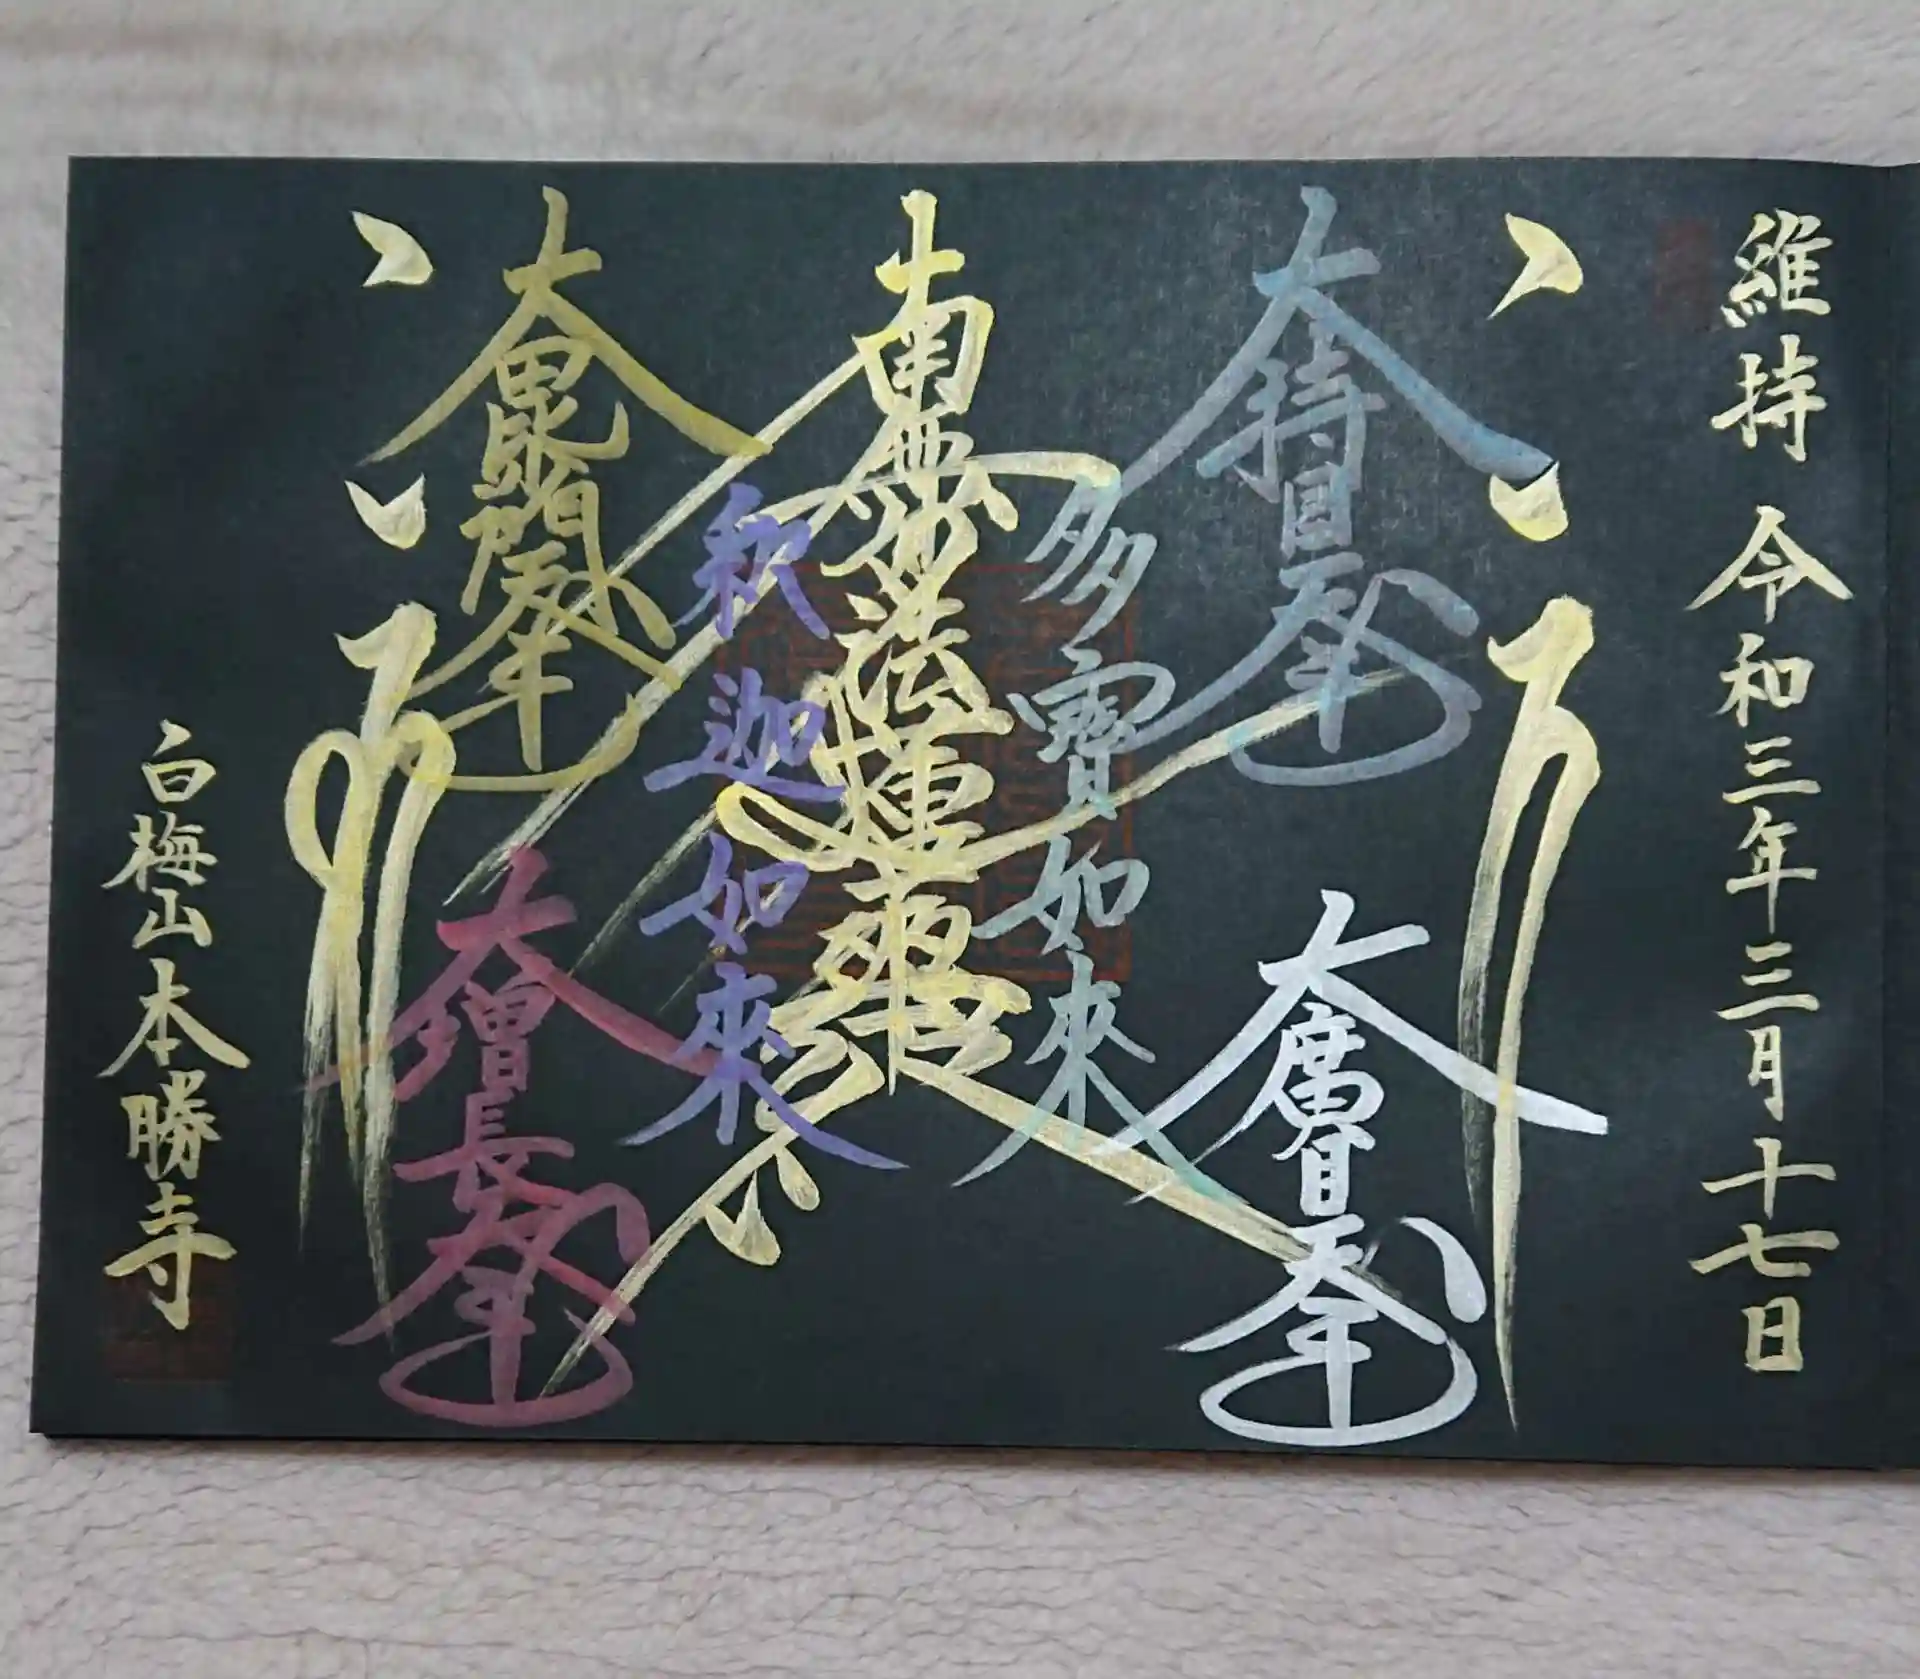 維持 令和三年三月十七日
大持国天王
大廣目天王
多寳如來
南無妙法蓮華経
釈迦如來
大毘沙門天王
大増長天王
白梅山本勝寺